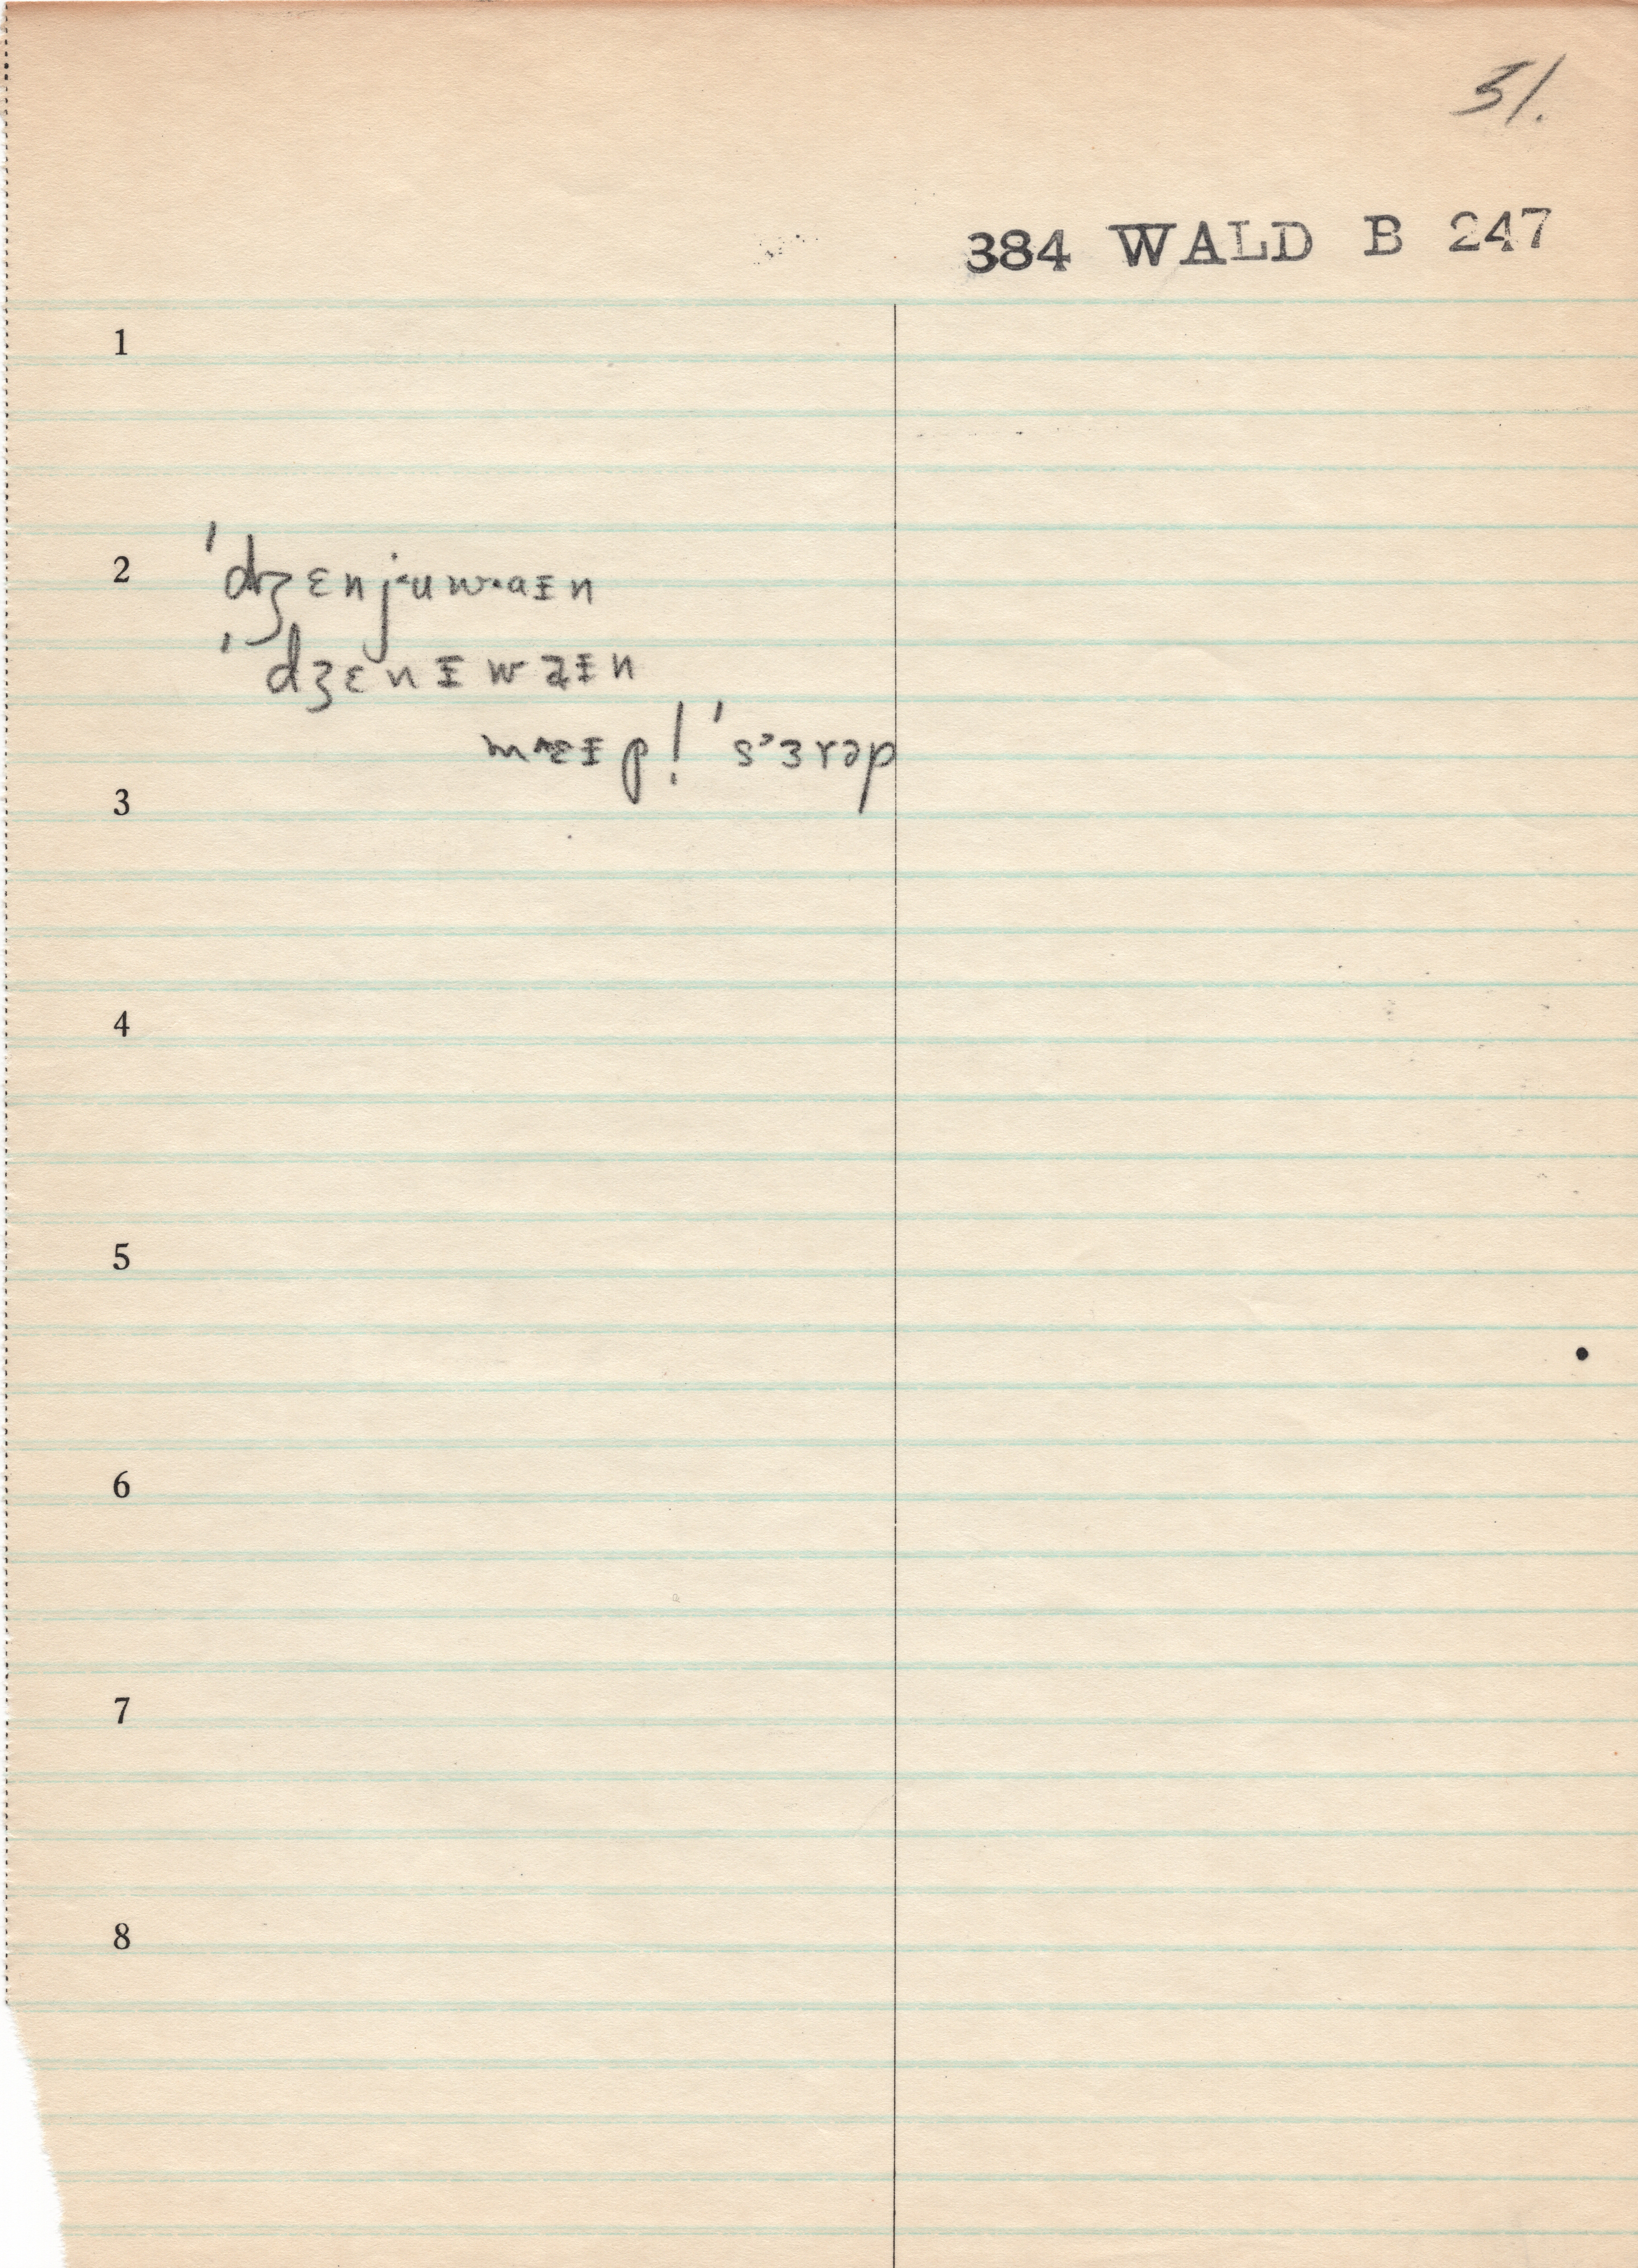 51.
384 WALD B 247
1
2 ˈdʒɛnjˑuwˑaɪn
ˈdʒɛnɪwaɪn
ˈsɜrəp
3
4
5
6
7
8